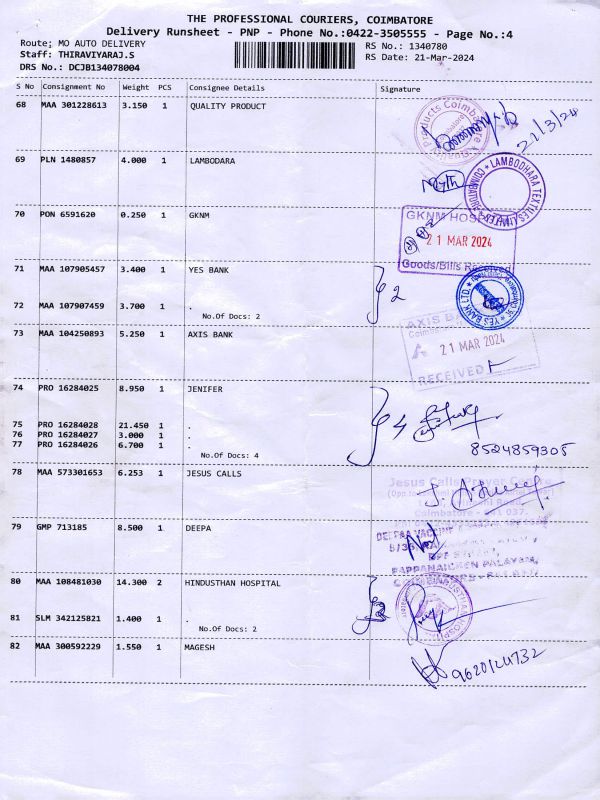 THE PROFESSIONAL COURIERS, COIMBATORE
Delivery Runsheet - PNP - Phone No.:0422-3505555 - Page No.:4
Route; MO AUTO DELIVERY RS No.: 1340780
Staff: THIRAVIYARAJ.S RS Date: 21-Mar-2024
DRS No.: DCJB134078004
S No Consignment No Weight PCS Consignee Details Signature
68 MAA 301228613 3.150 1 QUALITY PRODUCT
21/3/24
69 PLN 1480857 4.000 1 LAMBODARA
LAMBODHARA TEXTILES LIMITED
70 PON 6591620 0.250 1 GKNM
GKNM HOSPITAL
21 MAR 2024
Goods/Bills Received
71 MAA 107905457 3.400 1 YES BANK
2
YES BANK LTD.
72 MAA 107907459 3.700 1 .
No.Of Docs: 2
73 MAA 104250893 5.250 1 AXIS BANK
AXIS BANK
21 MAR 2024
RECEIVED
74 PRO 16284025 8.950 1 JENIFER
75 PRO 16284028 21.450 1 .
76 PRO 16284027 3.000 1 .
77 PRO 16284026 6.700 1 .
No.Of Docs: 4
4
8524859305
78 MAA 573301653 6.253 1 JESUS CALLS
Jesus Calls Prayer
Coimbatore - 641 037.
79 GMP 713185 8.500 1 DEEPA
DEEPAA VACCINE
PAPPANAICKEN PALAYAM,
80 MAA 108481030 14.300 2 HINDUSTHAN HOSPITAL
81 SLM 342125821 1.400 1 .
No.Of Docs: 2
82 MAA 300592229 1.550 1 MAGESH